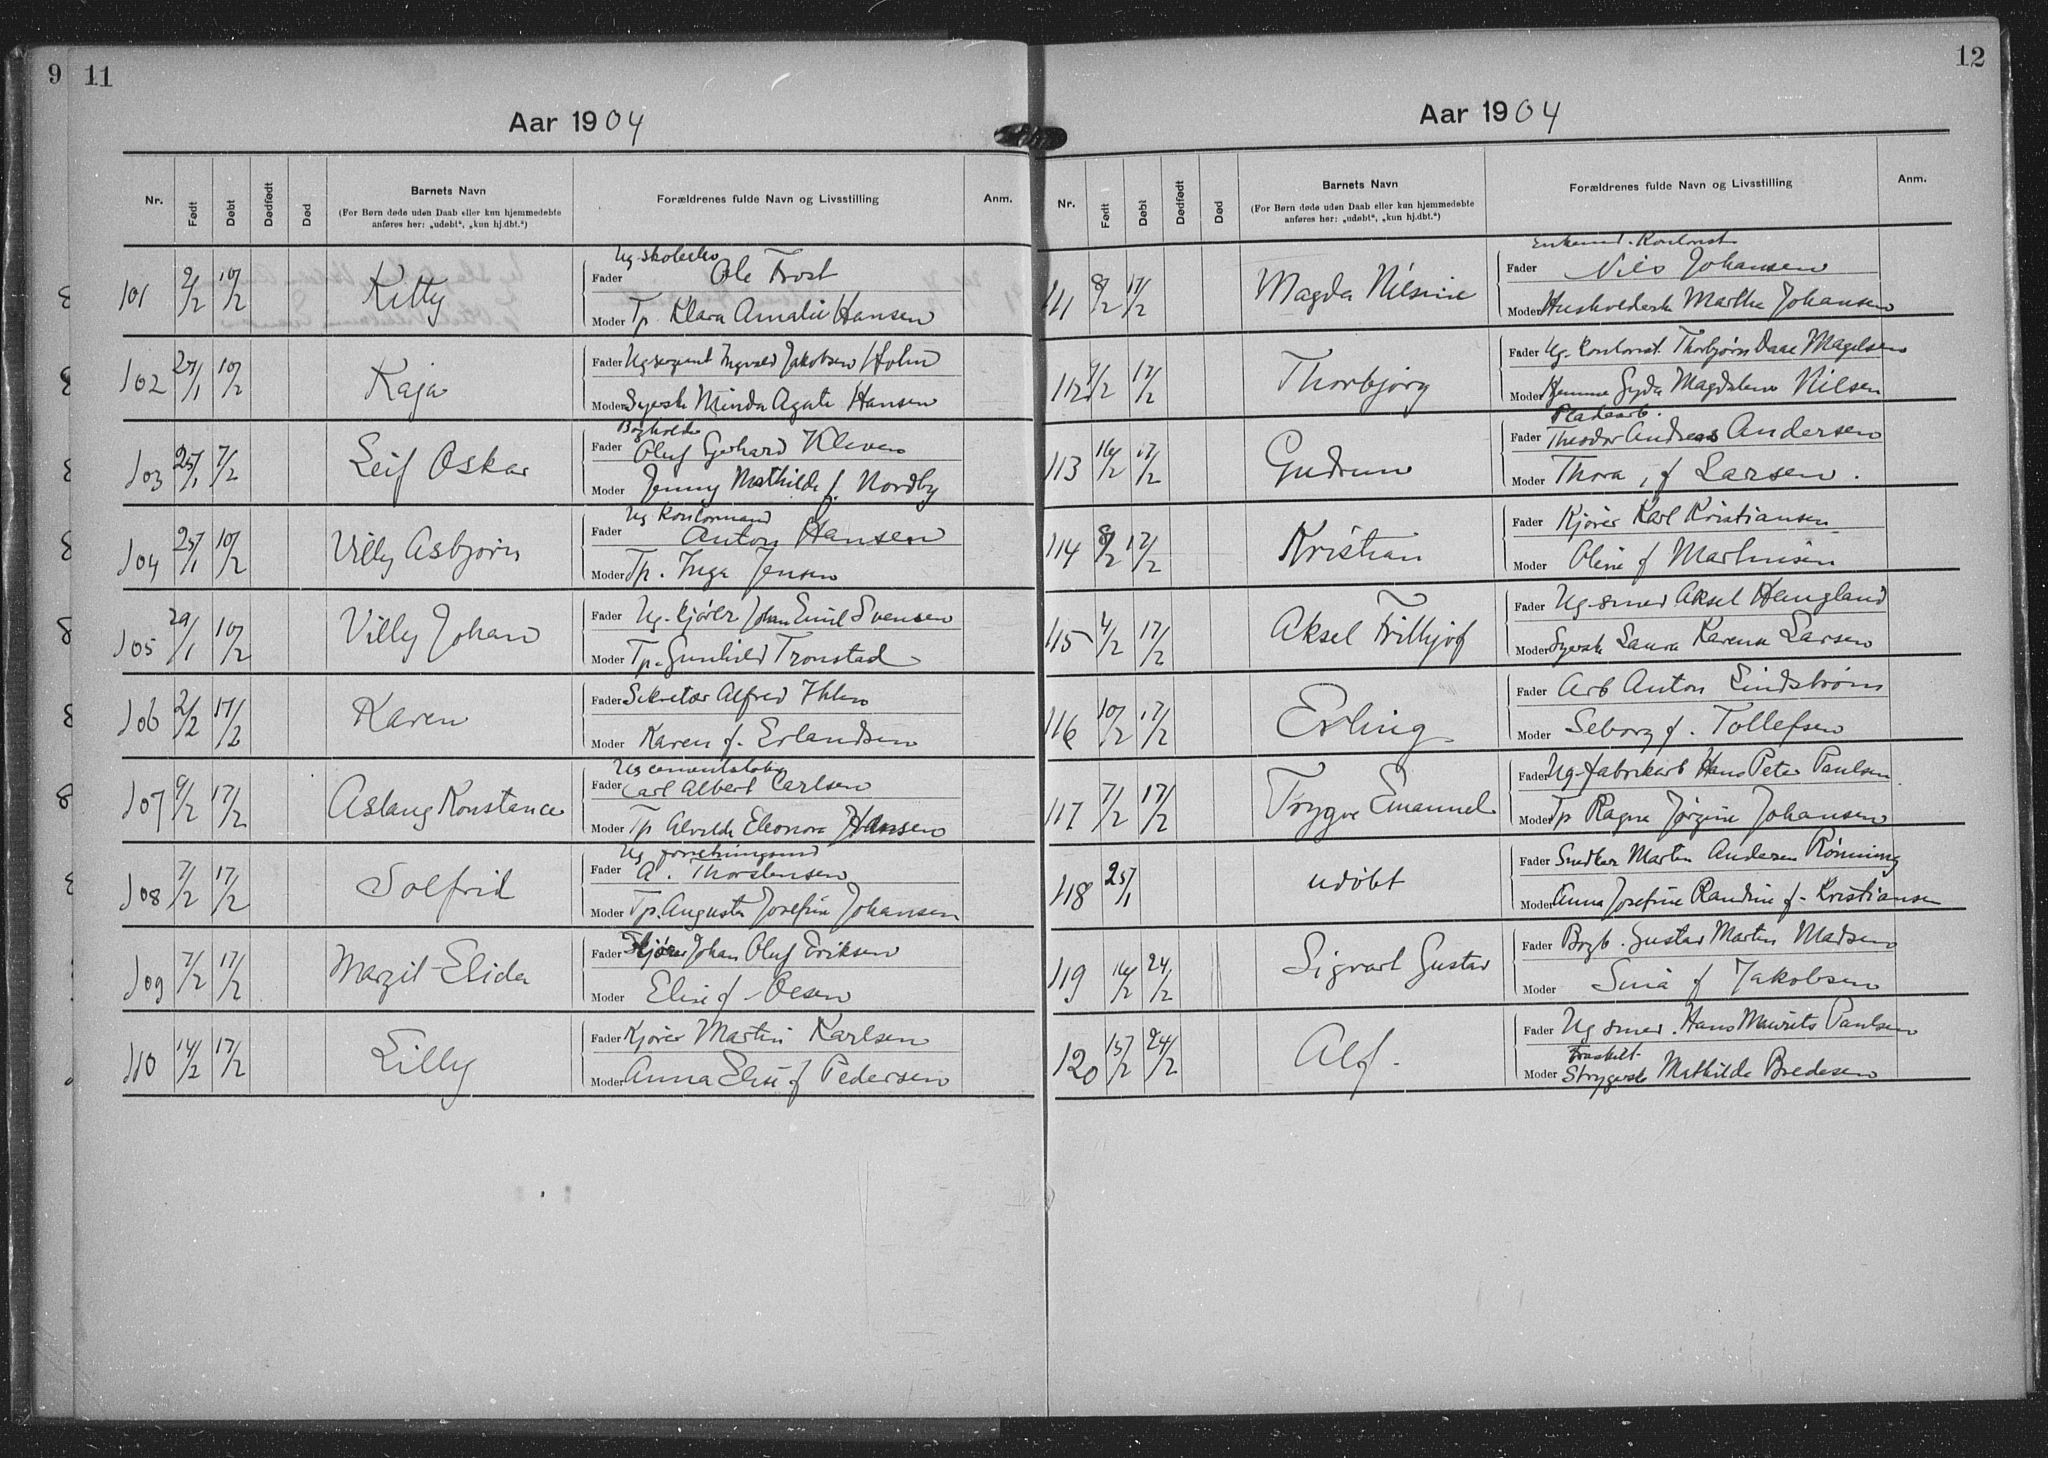 9 11
Aar 1904
Nr. Født Døbt Dødfødt Død Barnets Navn Forældrenes fulde Navn og Livsstilling Anm.
(For Børn døde uden Daab eller kun hjemmedøbte
anføres her: „udøbt“, „kun hj.dbt.“)
Ug
101 9/2 10/2 Kitty Fader Ole Trost
Moder Tp. Klara Amalie Hansen
102 27/1 10/2 Kaja Fader Ug sergent Ingvald Jakobsen Holm
Moder Syersk Minda Agate Hansen
Bogholder
103 25/1 7/2 Leif Oskar Fader Oluf Gerhard Kleven
Moder Jenny Mathilde f. Nordby
Ug kontormand
104 25/1 10/2 Villy Asbjørn Fader Anton Hansen
Moder Tp. Inga Jensen
105 29/1 10/2 Villy Johan Fader Ug. kjører Johan Emil Svensen
Moder Tp. Gunhild Tronstad
106 2/2 17/2 Karen Fader Sekretær Alfred Ihlen
Moder Karen f. Erlandsen
Ug cementstøber
107 9/2 17/2 Aslaug Konstance Fader Carl Albert Carlsen
Moder Tp Alvilde Eleonora Hansen
Ug forretningsmd
108 7/2 17/2 Solfrid Fader A. Thorstensen
Moder Tp. Augusta Josefine Johansen
109 7/2 17/2 Margit Elida Fader Kjører Johan Oluf Eriksen
Moder Elise f. Olsen
110 14/2 17/2 Lilly Fader Kjører Martin Karlsen
Moder Anna Elise f Pedersen
12
Aar 1904
Nr. Født Døbt Dødfødt Død Barnets Navn Forældrenes fulde Navn og Livsstilling Anm.
(For Børn døde uden Daab eller kun hjemmedøbte
anføres her: „udøbt“, „kun hj.dbt.“)
Enkemd. Kontorist
111 8/2 17/2 Magda Nilsine Fader Nils Johansen
Moder Husholderske Marthe Johansen
112 9/2 17/2 Thorbjørg Fader Ug. Kontorist Thorbjørn Daae Magelsen
Moder Hjemme Gyda Magdalene Nilsen
Pladearb.
113 16/2 17/2 Gudrun Fader Theodor Andreas Andersen
Moder Thora, f Larsen.
114 8/2 17/2 Kristian Fader Kjører Karl Kristiansen
Moder Oline f Martinsen
115 4/2 17/2 Aksel Frithjof Fader Ug. smed Aksel Haugland
Moder Syersk Laura Karena Larsen
116 10/2 17/2 Erling Fader Arb Anton Lindstrøm
Moder Seborg f. Tollefsen
117 7/2 17/2 Trygve Emanuel Fader Ug. fabrikarb Hans Peter Paulsen
Moder Tp Ragna Jørgine Johansen
118 25/1 udøbt Fader Snedker Martin Andersen Rønning
Moder Anna Josefine Randine f. Kristiansen
119 16/2 24/2 Sigvart Gustav Fader Bogb. Gustav Martin Madsen
Moder Sina f Jakobsen
120 15/2 24/2 Alf. Fader Ug smed. Hans Maurits Paulsen
Fraskilt
Moder Strygersk Mathilde Bredesen